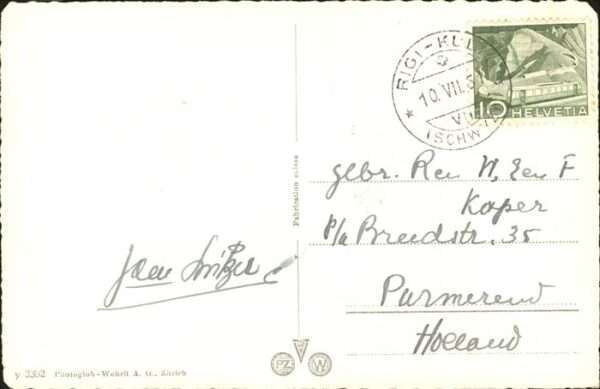 RIGI-KUL
10.VII.5
VII
(SCHW
10 HELVETIA
Gebr. Ren N, Een F
Koper
P/a Breedstr. 35
Purmerend
Holland
Fabrication suisse
Jaa
y 3362 Photoglob-Wehrli A. G., Zürich
PZ W